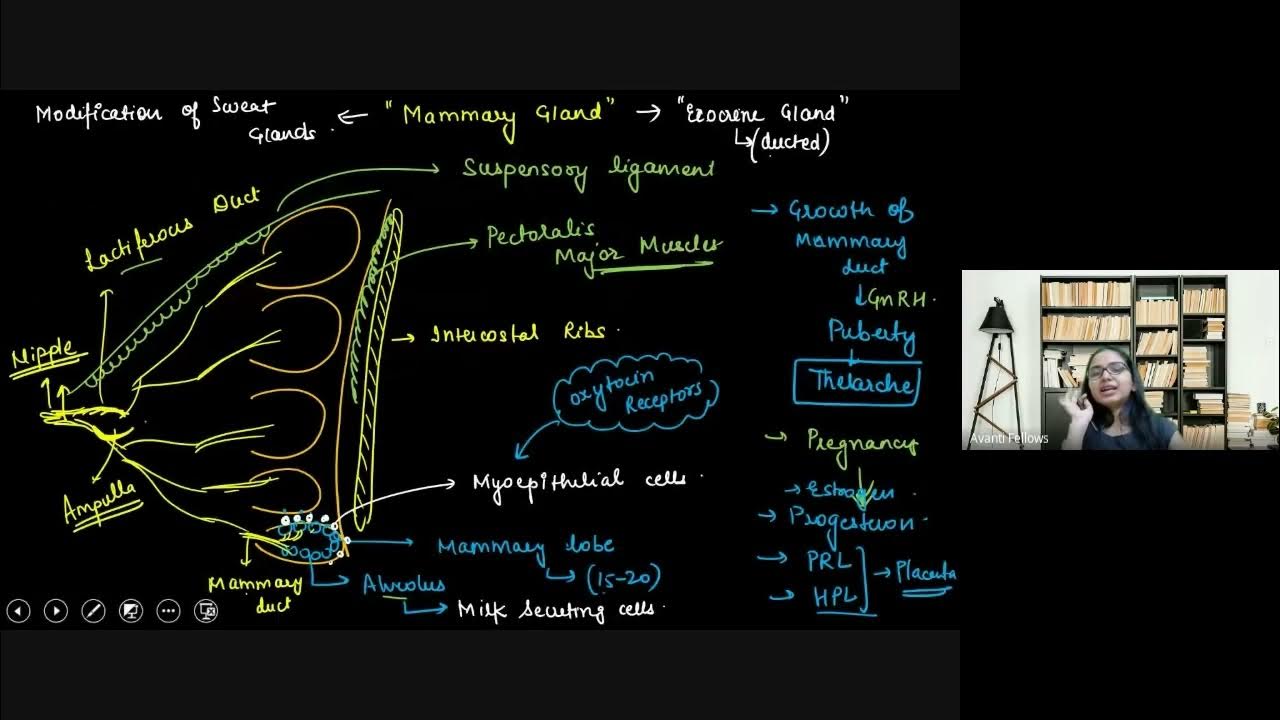 Modification of Sweat Glands. ← "Mammary Gland" → "Exocrine Gland"
↳ (ducted)
→ Suspensory ligament
Lactiferous Duct
→ Pectoralis
Major Muscles
→ Intercostal Ribs.
Nipple
Oxytocin
Receptors
Ampulla
→ Myoepithilial cells.
→ Mammary lobe
↳ (15-20)
Mammary
duct
→ Alveolus
→ Milk Secreting cells.
→ Growth of
Mammary
duct
↓ GnRH.
Puberty
Thelarche
→ Pregnancy
→ Estrogen.
→ Progesteron.
→ PRL
→ HPL
→ Placenta
Avanti Fellows